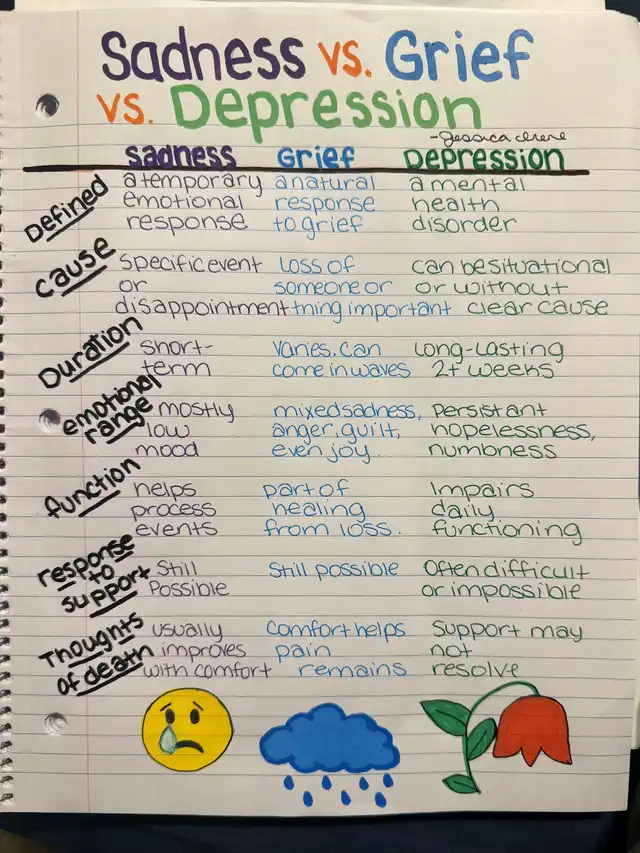 Sadness vs. Grief
vs. Depression
-Jessica Cherie
Sadness Grief Depression
Defined
a temporary
emotional
response
a natural
response
to grief
a mental
health
disorder
cause
specific event
or
disappointment
loss of
someone or
thing important
can be situational
or without
clear cause
Duration
short-
term
varies. can
come in waves
Long-Lasting
2+ weeks
emotional
range
mostly
low
mood
mixed sadness,
anger, guilt,
even joy.
persistant
hopelessness,
numbness
function
helps
process
events
part of
healing
from loss.
Impairs
daily
functioning
response
to
support
Still
Possible
Still possible
Often difficult
or impossible
Thoughts
of death
usually
improves
with comfort
comfort helps
pain
remains
support may
not
resolve